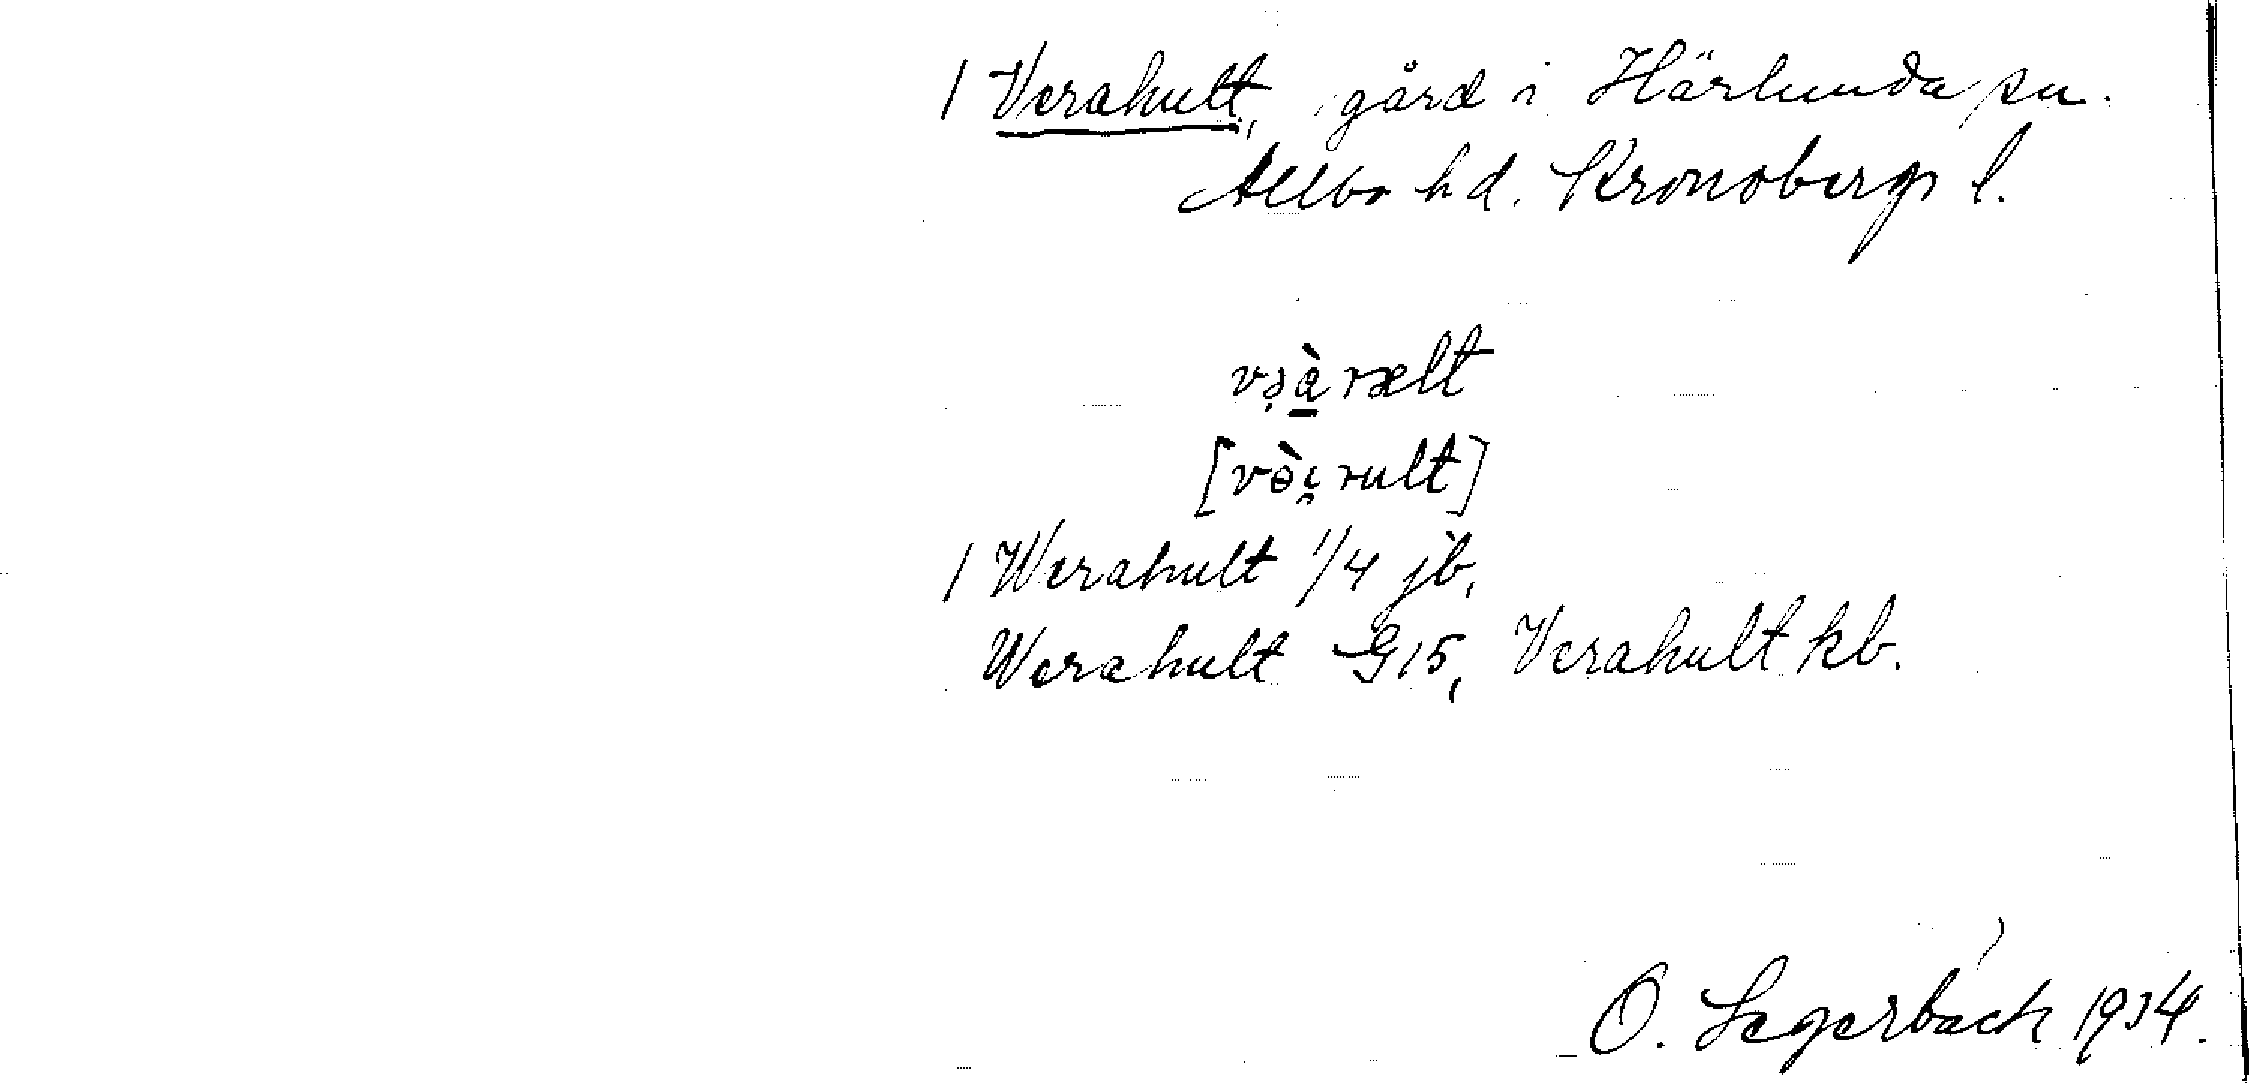 / Verahult, gård i Härlunda sn.
Allbo hd. Kronobergs l.
[və̀i̯rult]
/ Werahult 1/4 jb,
Werahult G15, Verahult kb.
O. Segerbäck 1934.